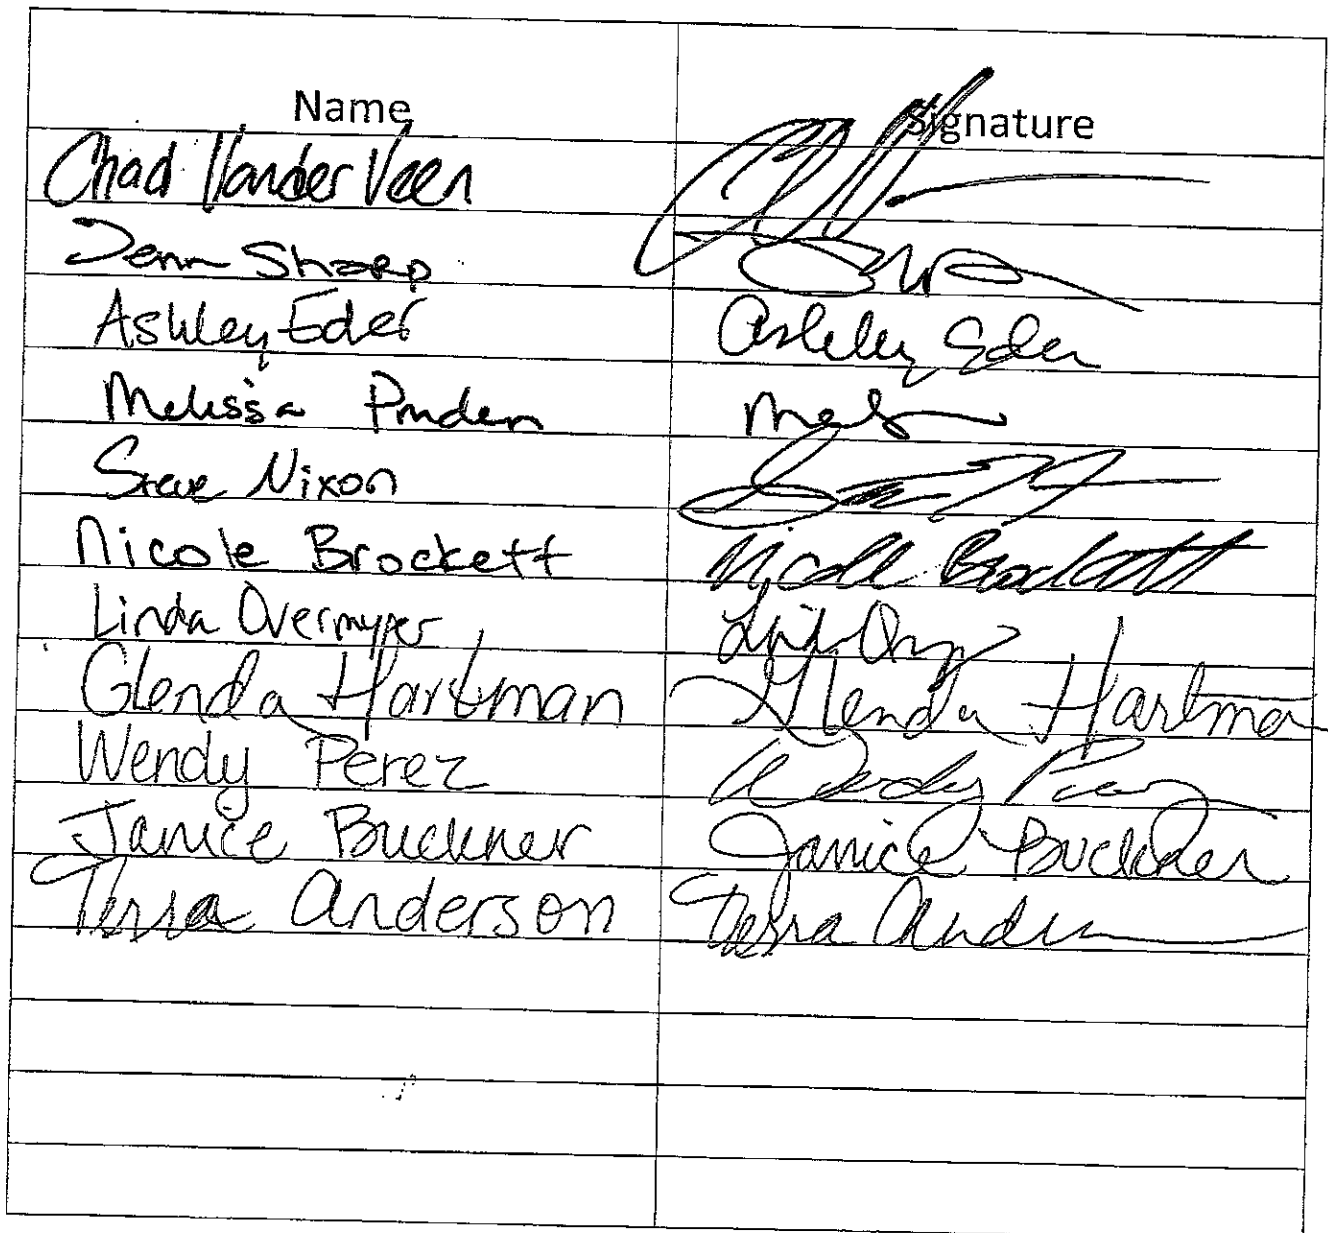 Name Signature
Chad Vander Veen
Jenn Sharp
Ashley Eder Ashley Eder
Melissa Pruden Mel
Steve Nixon
Nicole Brockett Nicole Brockett
Linda Overmyer
Glenda Hartman Glenda Hartman
Wendy Perez Wendy Perez
Janice Buckner Janice Buckner
Terra Anderson Terra Anderson